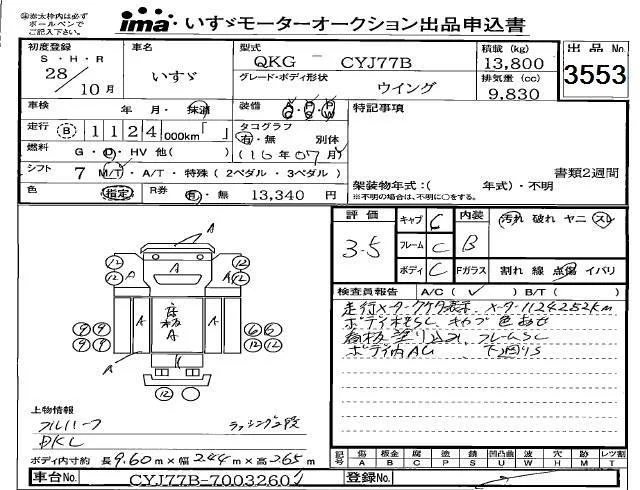 ㊟赤太枠内は必ず
ボールペンで
ご記入下さい。
ima いすゞモーターオークション出品申込書
初度登録 S・H・R 28年 10月
車名 いすゞ
型式 QKG - CYJ77B
グレード・ボディ形状 ウイング
積載(kg) 13,800
排気量(cc) 9,830
出品No. 3553
車検 年 月・抹消
装備 A/C P/S P/W
特記事項
走行 B 1124,000km「 」
タコグラフ 有・無 別体
(16年07月)
燃料 G・D・HV 他( )
書類2週間
シフト 7 M/T・A/T・特殊(2ペダル・3ペダル)
架装物年式:( 年式)・不明
色 指定 R券 有・無 13,340 円
※不明の場合は、不明に○をする。
評価 3.5
キャブ C
フレーム C
ボディ C
内装 B
Fガラス
汚れ 破れ ヤニ スレ
割れ 線 点傷 イバリ
検査員報告 A/C(✓) B/T( )
走行メーター メーター1124252km
ボディ SC、キャブ 色あせ
看板塗り込み、フレームSC
ボディ内AG 下回りS
A
12 12
12 12
A A A
9 9 A 床板A A 6 6
9 9 12 12
A
12
上物情報
フルハーフ ラッシング2段
DKL
ボディ内寸約 長9.60m×幅2.44m×高2.65m
記号 傷A 板金B 腐C 塗P 錆S 凹凸曲U 波W 穴H 所M レツ割T
車台No. CYJ77B-7003260
登録No.